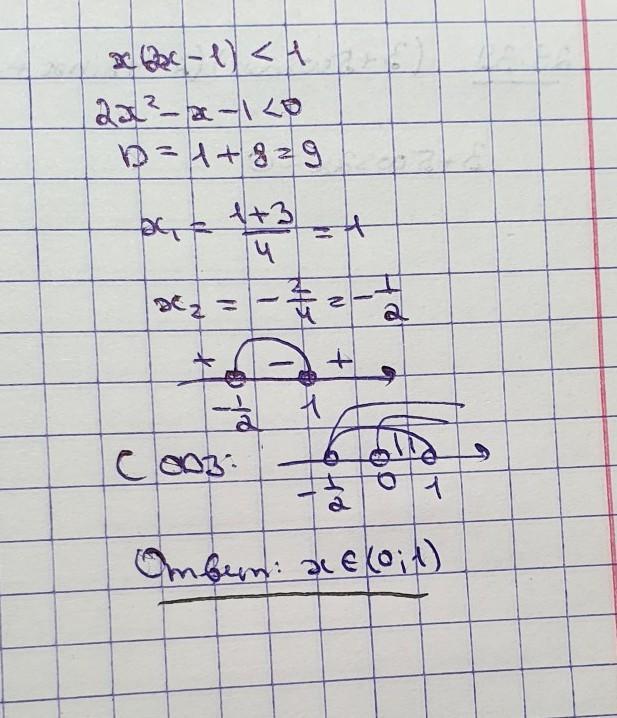 x(2x-1) < 1
2x² - x - 1 < 0
D = 1 + 8 = 9
x₁ = (1+3)/4 = 1
x₂ = -2/4 = -1/2
+ - +
-1/2 1
С ОДЗ:
-1/2 0 1
Ответ: x ∈ (0; 1)